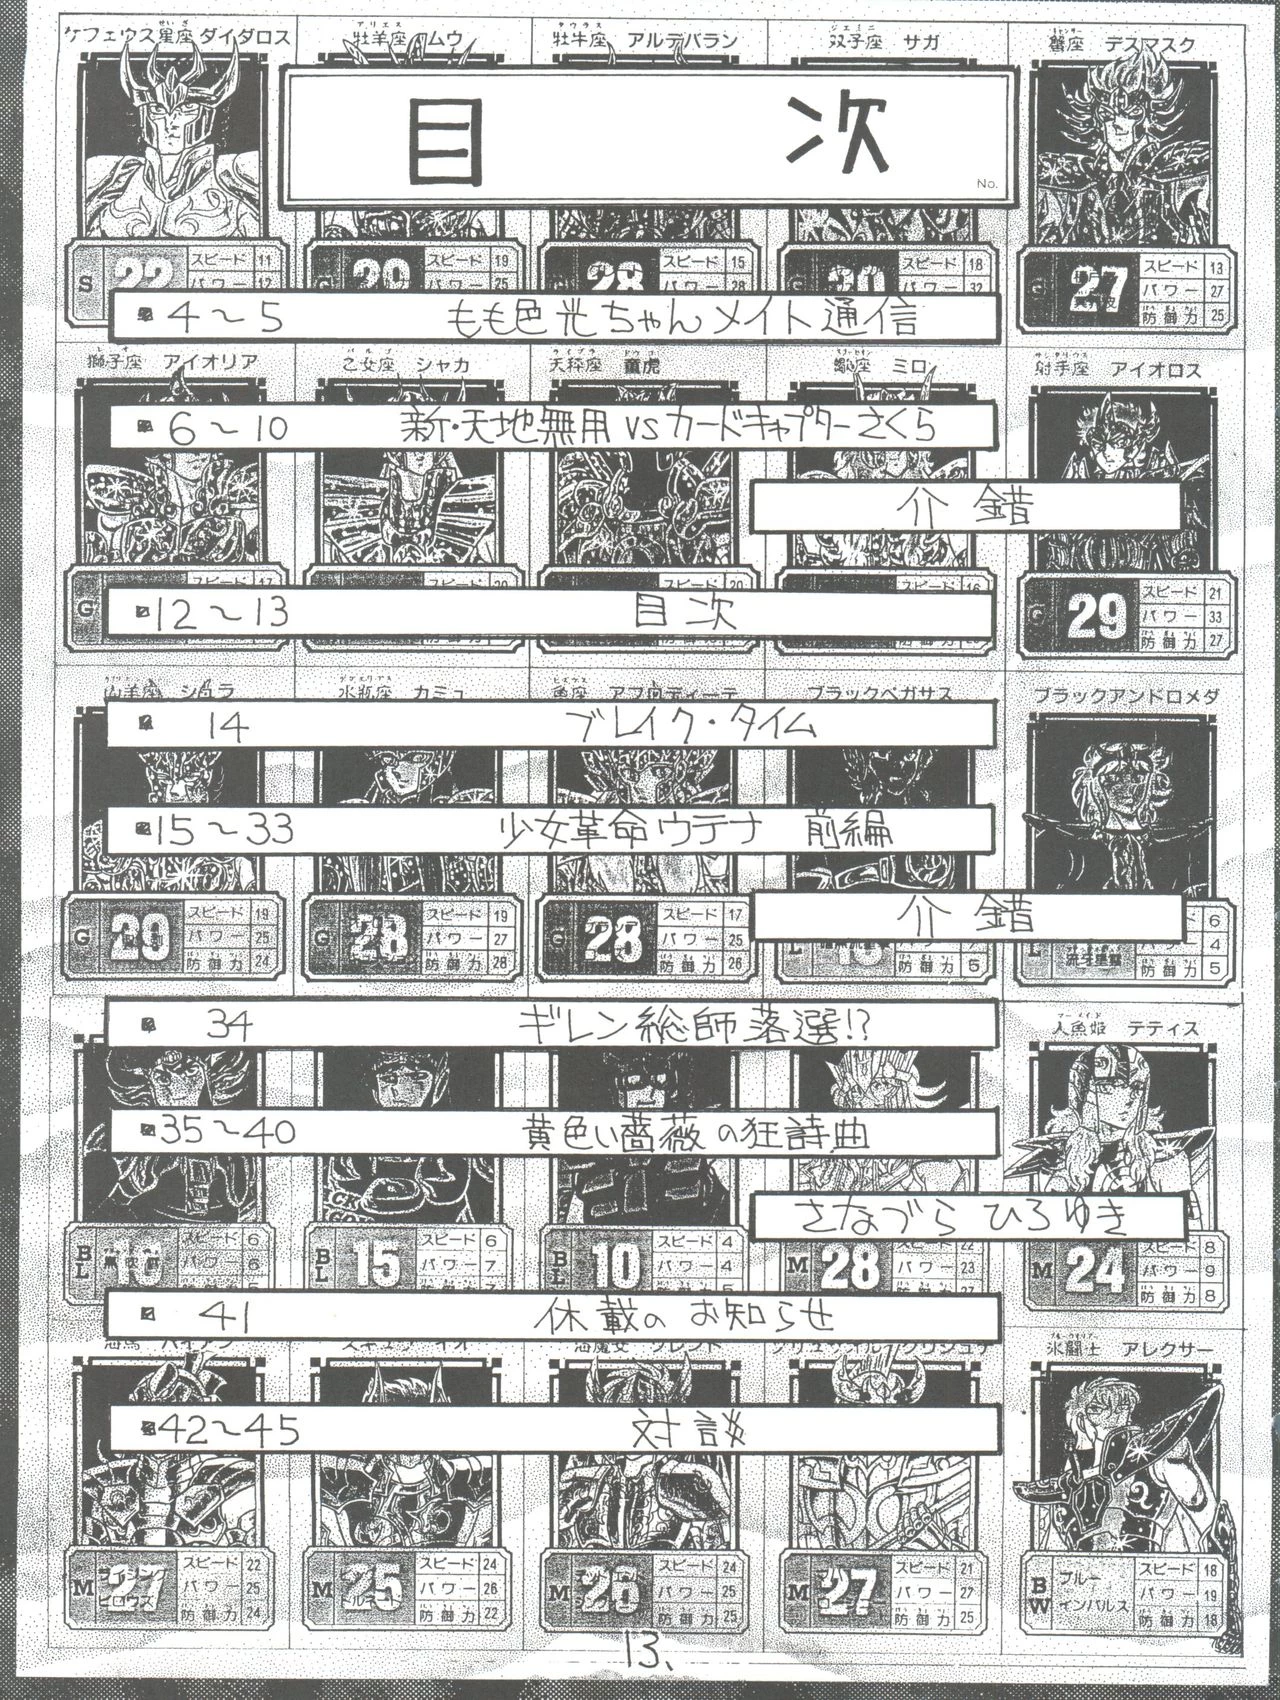 ケフェウス星座 ダイダロス
牡羊座 ムウ
牡牛座 アルデバラン
双子座 サガ
蟹座 デスマスク
目 次
No.
S 22 スピード 11
パワー 12
G 29 スピード 19
パワー 25
G 28 スピード 15
パワー 28
G 30 スピード 18
パワー 32
G 27 スピード 13
パワー 27
防御力 25
4〜5 もも色光ちゃんメイト通信
獅子座 アイオリア
乙女座 シャカ
天秤座 童虎
蠍座 ミロ
射手座 アイオロス
6〜10 新・天地無用 VS カードキャプターさくら
介 錯
G スピード 17
スピード 20
スピード 20
スピード 16
G 29 スピード 21
パワー 33
防御力 27
12〜13 目次
山羊座 シュラ
水瓶座 カミュ
魚座 アフロディーテ
ブラックペガサス
ブラックアンドロメダ
14 ブレイク・タイム
15〜33 少女革命ウテナ 前編
介 錯
G 29 スピード 19
パワー 25
防御力 24
G 28 スピード 19
パワー 27
防御力 28
G 28 スピード 17
パワー 25
防御力 26
防御力 5
6
パワー 4
防御力 5
34 ギレン総帥落選!?
人魚姫 テティス
35〜40 黄色い薔薇の狂詩曲
さなづら ひろゆき
BL 10 スピード 6
パワー 6
BL 15 スピード 6
パワー 7
BL 10 スピード 4
パワー 4
M 28 22
パワー 23
M 24 スピード 8
パワー 9
防御力 8
41 休載の お知らせ
氷闘士 アレクサー
42〜45 対談
M 27 ライジング ビロウズ スピード 22
パワー 25
防御力 24
M 25 スピード 24
パワー 26
防御力 22
M 26 スピード 24
パワー 25
防御力 25
M 27 スピード 21
パワー 27
防御力 25
BW ブルー インパルス スピード 18
パワー 19
防御力 18
13、